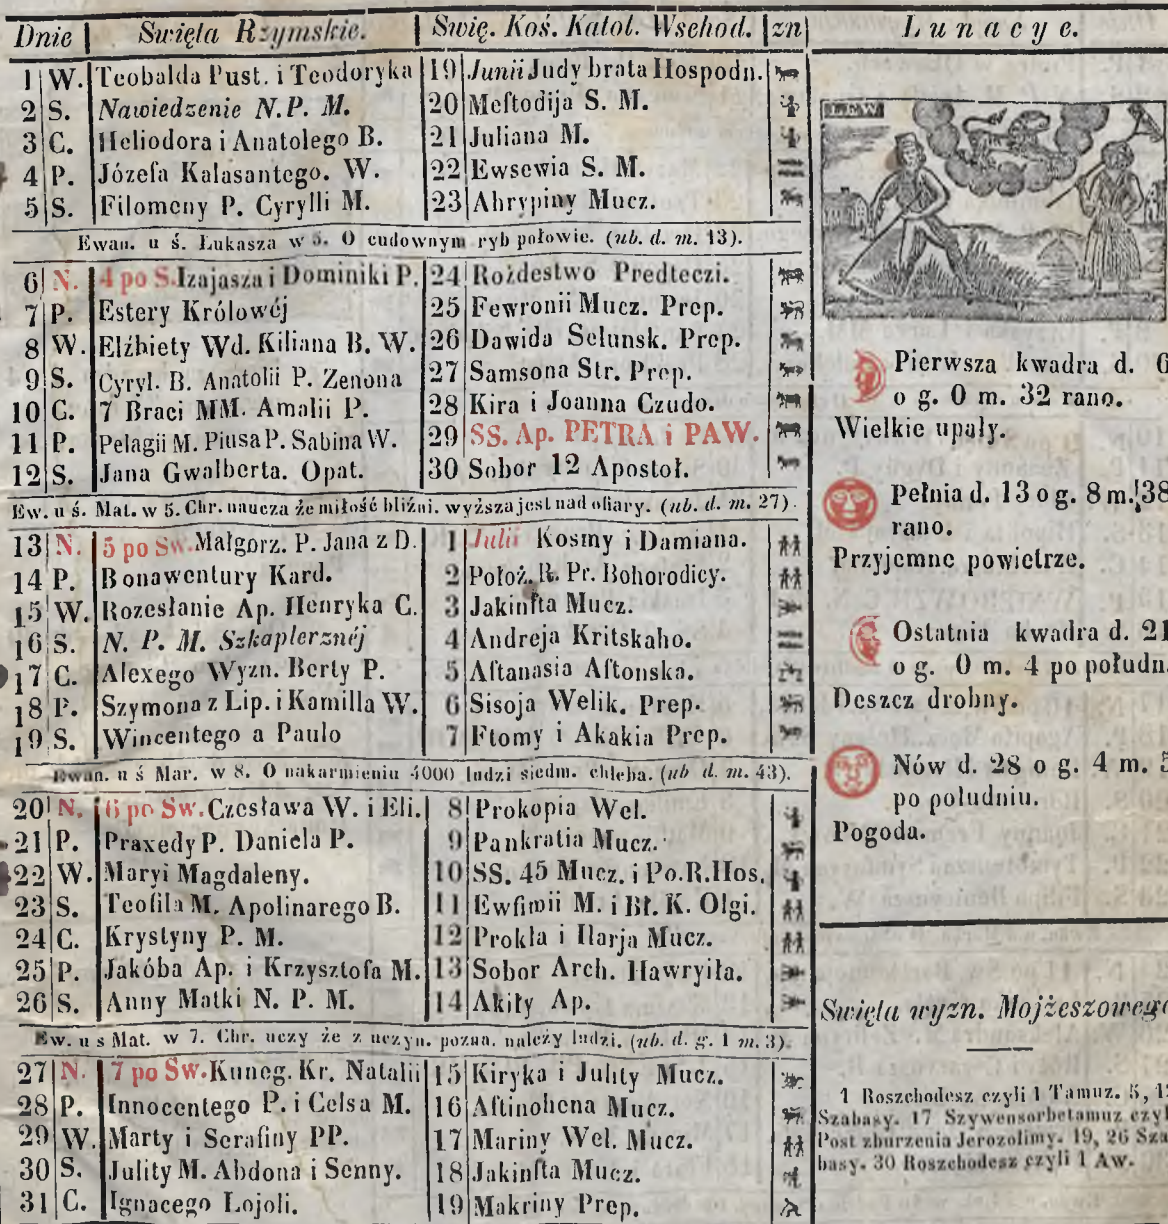 Dnie | Swięta Rzymskie. | Swię. Koś. Katol. Wschod. | zn
1 W. Teobalda Pust. i Teodoryka 19 Junii Judy brata Hospodn.
2 S. Nawiedzenie N. P. M. 20 Meftodija S. M.
3 C. Heliodora i Anatolego B. 21 Juliana M.
4 P. Józefa Kalasantego. W. 22 Ewsewia S. M.
5 S. Filomeny P. Cyrylli M. 23 Ahrypiny Mucz.
Ewan. u ś. Łukasza w 5. O cudownym ryb połowie. (ub. d. m. 13).
6 N. 4 po S. Izajasza i Dominiki P. 24 Rożdestwo Predteczi.
7 P. Estery Królowéj 25 Fewronii Mucz. Prep.
8 W. Elżbiety Wd. Kiliana B. W. 26 Dawida Sełunsk. Prep.
9 S. Cyryl. B. Anatolii P. Zenona 27 Samsona Str. Prep.
10 C. 7 Braci MM. Amalii P. 28 Kira i Joanna Czudo.
11 P. Pelagii M. Piusa P. Sabina W. 29 SS. Ap. PETRA i PAW.
12 S. Jana Gwalberta. Opat. 30 Sobor 12 Apostoł.
Ew. u ś. Mat. w 5. Chr. naucza że miłość bliźni. wyższa jest nad ofiary. (ub. d. m. 27).
13 N. 5 po Sw. Małgorz. P. Jana z D. 1 Julii Kosmy i Damiana.
14 P. Bonawentury Kard. 2 Położ. R. Pr. Bohorodicy.
15 W. Rozesłanie Ap. Henryka C. 3 Jakinfta Mucz.
16 S. N. P. M. Szkaplerznéj 4 Andreja Kritskaho.
17 C. Alexego Wyzn. Berty P. 5 Aftanasia Aftonska.
18 P. Szymona z Lip. i Kamilla W. 6 Sisoja Welik. Prep.
19 S. Wincentego a Paulo 7 Ftomy i Akakia Prep.
Ewan. u ś Mar. w 8. O nakarmieniu 4000 ludzi siedm. chleba. (ub d. m. 43).
20 N. 6 po Sw. Czesława W. i Eli. 8 Prokopia Weł.
21 P. Praxedy P. Daniela P. 9 Pankratia Mucz.
22 W. Maryi Magdaleny. 10 SS. 45 Mucz. i Po. R. Hos.
23 S. Teofila M. Apolinarego B. 11 Ewfimii M. i Bł. K. Olgi.
24 C. Krystyny P. M. 12 Prokla i Ilarja Mucz.
25 P. Jakóba Ap. i Krzysztofa M. 13 Sobor Arch. Hawryiła.
26 S. Anny Matki N. P. M. 14 Akiły Ap.
Ew. u s Mat. w 7. Chr. uczy że z uczyn. pozna. należy ludzi. (ub. d. g. 1 m. 3).
27 N. 7 po Sw. Kuneg. Kr. Natalii 15 Kiryka i Julity Mucz.
28 P. Innocentego P. i Celsa M. 16 Aftinohena Mucz.
29 W. Marty i Serafiny PP. 17 Mariny Wel. Mucz.
30 S. Julity M. Abdona i Senny. 18 Jakinfta Mucz.
31 C. Ignacego Lojoli. 19 Makriny Prep.
Lunacye.
LEW
Pierwsza kwadra d. 6
o g. 0 m. 32 rano.
Wielkie upały.
Pełnia d. 13 o g. 8 m. 38
rano.
Przyjemne powietrze.
Ostatnia kwadra d. 21
o g. 0 m. 4 po południ
Deszcz drobny.
Nów d. 28 o g. 4 m. 5
po południu.
Pogoda.
Swięta wyzn. Mojżeszowego
1 Roszchodesz czyli 1 Tamuz. 5, 1
Szabasy. 17 Szywensorbetamuz czyl
Post zburzenia Jerozolimy. 19, 26 Sza
basy. 30 Roszchodesz czyli 1 Aw.